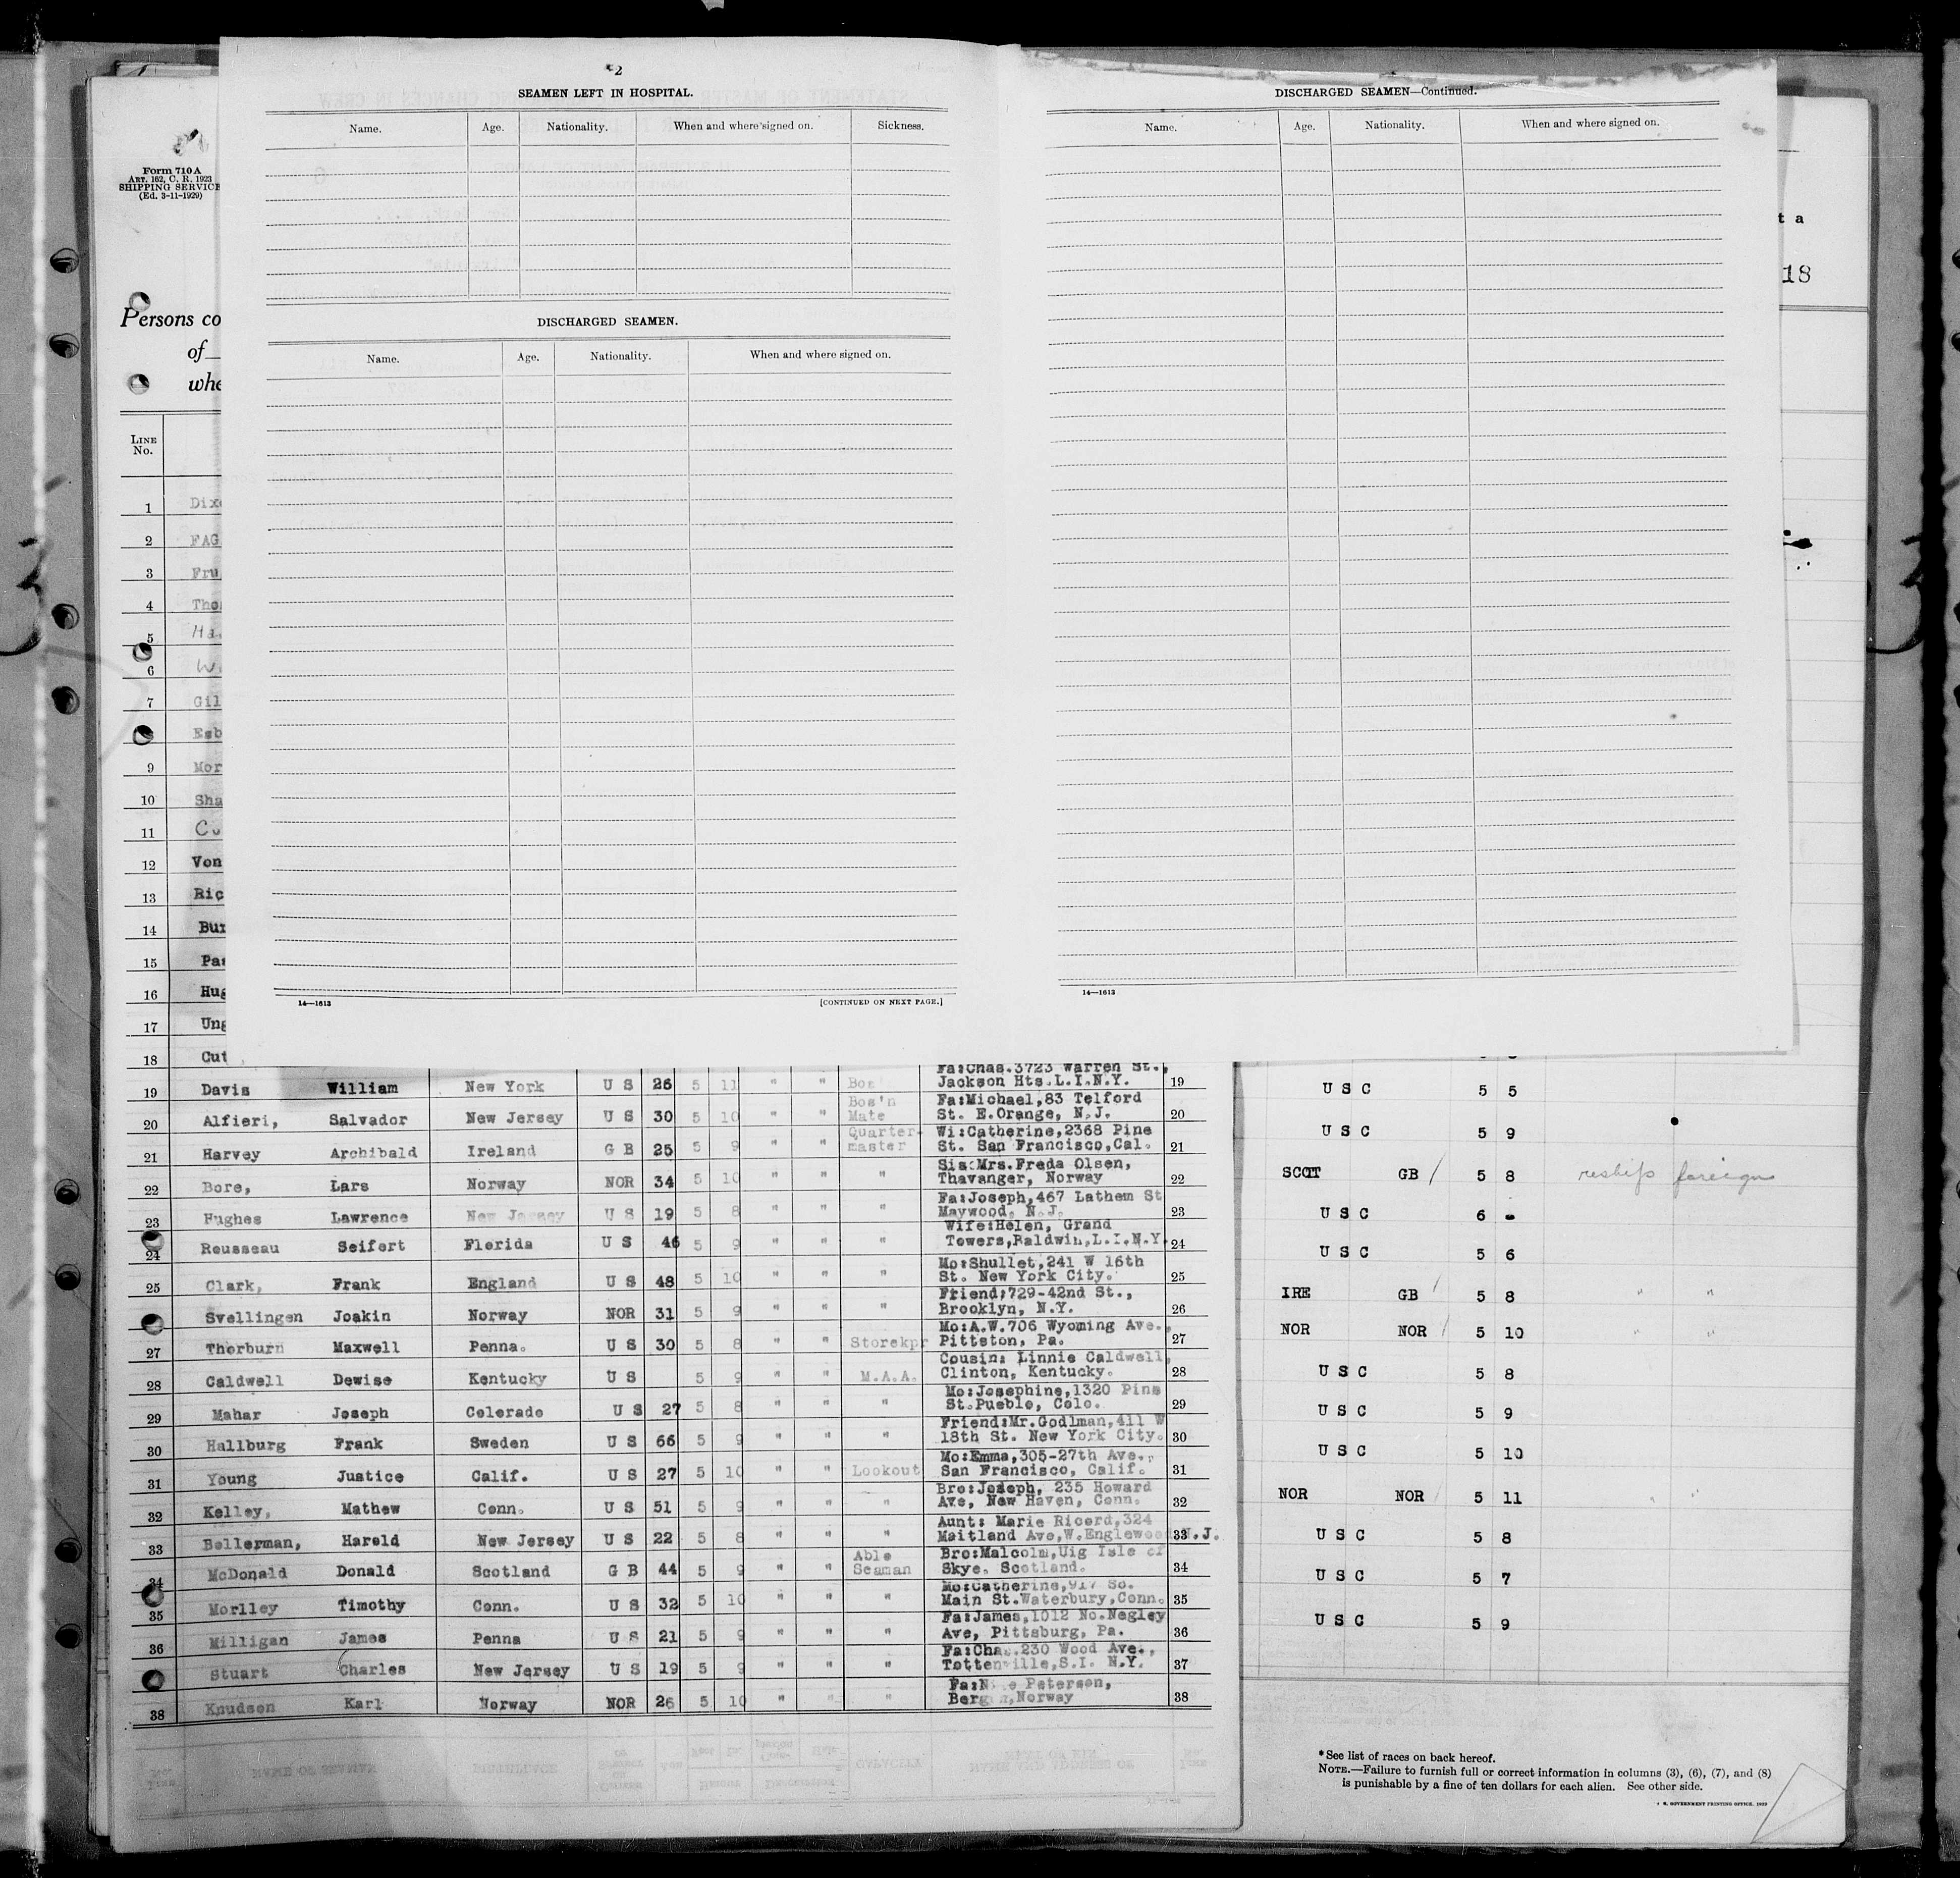 2
SEAMEN LEFT IN HOSPITAL.
Name. Age. Nationality. When and where signed on. Sickness.
DISCHARGED SEAMEN.
Name. Age. Nationality. When and where signed on.
14—1613 [CONTINUED ON NEXT PAGE.]
DISCHARGED SEAMEN—Continued.
Name. Age. Nationality. When and where signed on.
14—1613
Form 710 A
ART. 162, C. R. 1923
SHIPPING SERVICE
(Ed. 3-11-1929)
Persons co
of
whe
LINE
No.
1 Dix
2 FAG
3 Fru
4 Tho
5 Ha
6 W
7 Gil
Esb
9 Mor
10 Sha
11 Cu
12 Von
13 Ric
14 Bur
15 Pa
16 Hug
17 Ung
18 Cut
Fa:Chas.3723 Warren St.,
19 Davis William New York U S 26 5 11 " " Bos' Jackson Hts.L.I.N.Y. 19
Bos'n Fa:Michael,83 Telford
20 Alfieri, Salvador New Jersey U S 30 5 10 " " Mate St. E.Orange, N.J. 20
Quarter- Wi:Catherine,2368 Pine
21 Harvey Archibald Ireland G B 25 5 9 " " master St. San Francisco,Cal. 21
Sis:Mrs.Freda Olsen,
22 Bore, Lars Norway NOR 34 5 10 " " " Thavanger, Norway 22
Fa:Joseph,467 Lathem St
23 Hughes Lawrence New Jersey U S 19 5 8 " " " Maywood, N.J. 23
Wife:Helen, Grand
24 Rousseau Seifert Florida U S 46 5 9 " " " Towers,Baldwin,L.I.N.Y. 24
Mo:Shullet,241 W 16th
25 Clark, Frank England U S 48 5 10 " " " St. New York City. 25
Friend;729-42nd St.,
Svellingen Joakin Norway NOR 31 5 9 " " " Brooklyn, N.Y. 26
Mo:A.W.706 Wyoming Ave.,
27 Thorburn Maxwell Penna. U S 30 5 8 " " Storekpr Pittston, Pa. 27
Cousin: Linnie Caldwell,
28 Caldwell Dewise Kentucky U S 5 9 " " M.A.A. Clinton, Kentucky. 28
Mo:Josephine,1320 Pine
29 Mahar Joseph Colorado U S 27 5 8 " " " St.Pueblo, Colo. 29
Friend:Mr.Godlman,411 W
30 Hallburg Frank Sweden U S 66 5 9 " " " 18th St. New York City. 30
Mo:Emma,305-27th Ave.,
31 Young Justice Calif. U S 27 5 10 " " Lookout San Francisco, Calif. 31
Bro:Joseph, 235 Howard
32 Kelley, Mathew Conn. U S 51 5 9 " " " Ave, New Haven, Conn. 32
Aunt: Marie Ricord,324
33 Bollerman, Harold New Jersey U S 22 5 8 " " " Maitland Ave,W.Englewood 33 N.J.
Able Bro:Malcolm,Uig Isle of
34 McDonald Donald Scotland G B 44 5 9 " " Seaman Skye. Scotland. 34
Mo:Catherine,917 So.
35 Morlley Timothy Conn. U S 32 5 10 " " " Main St.Waterbury,Conn. 35
Fa:James,1012 No.Negley
36 Milligan James Penna U S 21 5 9 " " " Ave, Pittsburg, Pa. 36
Fa:Cha .230 Wood Ave.,
Stuart Charles New Jersey U S 19 5 9 " " " Tottenville,S.I. N.Y. 37
Peterson,
38 Knudsen Karl Norway NOR 26 5 10 " " " Norway 38
t a
18
U S C 5 5
U S C 5 9
SCOT GB / 5 8 reship foreign
U S C 6 -
U S C 5 6
IRE GB / 5 8 " "
NOR NOR / 5 10 " "
U S C 5 8
U S C 5 9
U S C 5 10
NOR NOR / 5 11 " "
U S C 5 8
U S C 5 7
U S C 5 9
* See list of races on back hereof.
NOTE.—Failure to furnish full or correct information in columns (3), (6), (7), and (8)
is punishable by a fine of ten dollars for each alien. See other side.